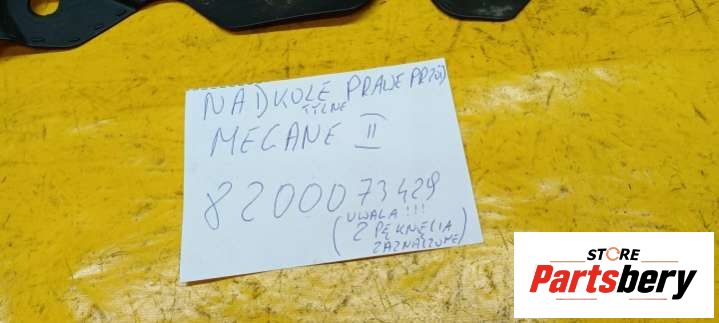 NADKOLE PRAWE PRZÓD
TYLNE
MEGANE II
8200073429
UWAGA!!!
(2 PĘKNIĘCIA
ZAZNACZONE)
STORE
Partsbery